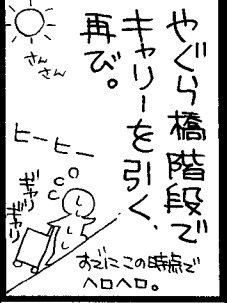 やぐら橋階段で
キャリーを引く、
再び。
さん
さん
ヒーヒー
ギャリ
ギャリ
おでにこの時点で
ヘロヘロ。